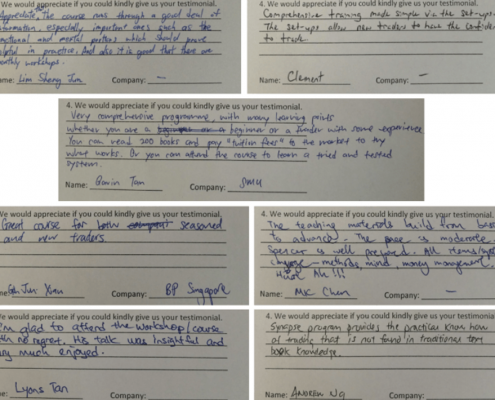 We would appreciate if you could kindly give us your testimonial.
Appreciate. The course runs through a good deal of
information, especially important ones such as the
and mental portions which should prove
helpful in practice. And also it is good that there are
monthly workshops.
Name: Lim Sheng Jun Company: —
We would appreciate if you could kindly give us your testimonial.
Comprehensive training made simple via the set-ups.
The set-ups allow new traders to have the confidence
to trade
Name: Clement Company: —
4. We would appreciate if you could kindly give us your testimonial.
Very comprehensive programme, with many learning points
whether you are a beginner or a trader with some experience
You can read 200 books and pay "tuition fees" to the market to try
what works. Or you can attend the course to learn a tried and tested
system.
Name: Gavin Tan Company: SMU
We would appreciate if you could kindly give us your testimonial.
Great course for both seasoned
and new traders
Jun Company: BP Singapore
4. We would appreciate if you could kindly give us your testimonial.
The teaching materials build from basic
to advance. The pace is moderate
Spencer is well prepared. All
methods, mind, money management.
Huat Ah!!!
Name: Chen Company: —
We would appreciate if you could kindly give us your testimonial.
I'm glad to attend the workshop/course
with no regret. His talk was insightful and
very much enjoyed.
Lyons Tan Company:
4. We would appreciate if you could kindly give us your testimonial.
Synapse program provides the practical know how
of trading that is not found in traditional
book knowledge.
Name: Andrew Ng Company: